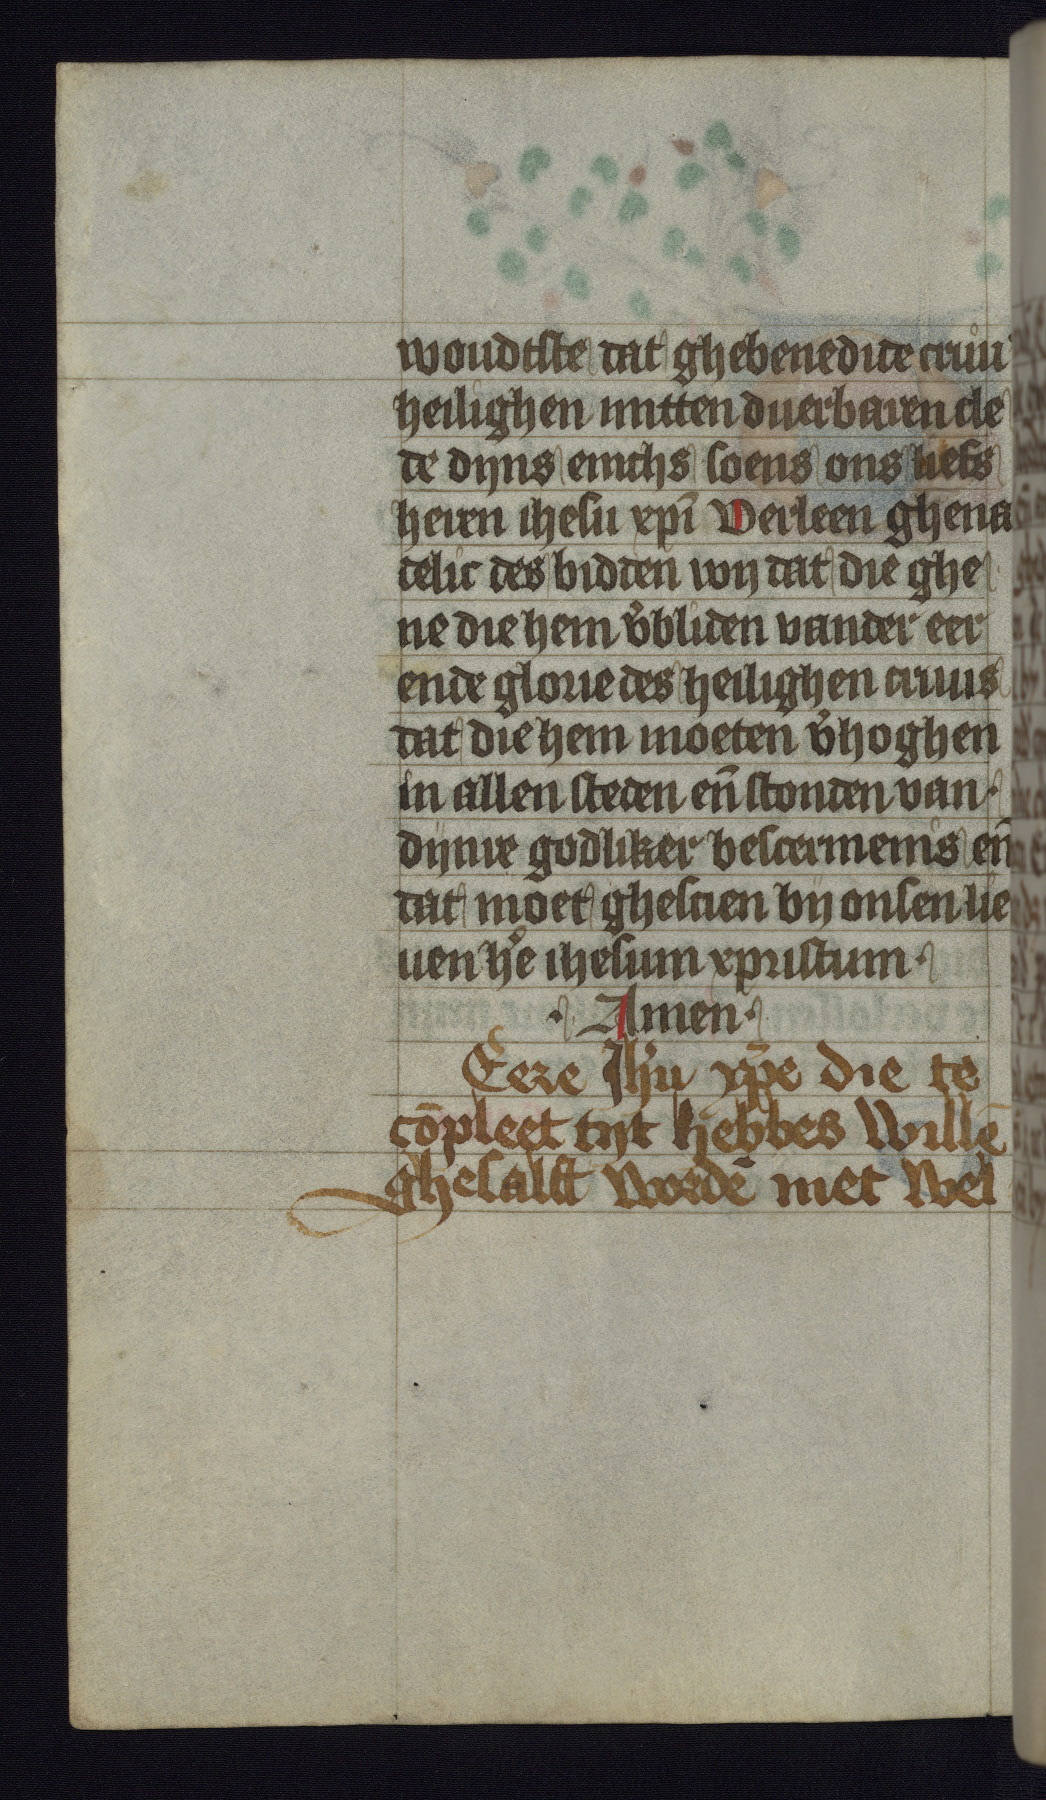 woudtste dat ghebenedide cruu
heilighen mitten duerbaren cle
de dijns enichs soens ons liefs
heren ihesu xpi Verleen ghena
delic des bidden wij dat die ghe
ne die hem v̉bliden vander eer
ende glorie des heilighen cruus
dat die hem moeten v̉hoghen
in allen steden en̄ stonden van
dijnre godliker beschermenis en̄
dat moet ghescien bij onsen lie
uen h̉e ihesum xpristum
Amen
Eere Jhu xp̄e die te
cōpleet tijt hebbes Willē
ghesalft Wordē met Wel